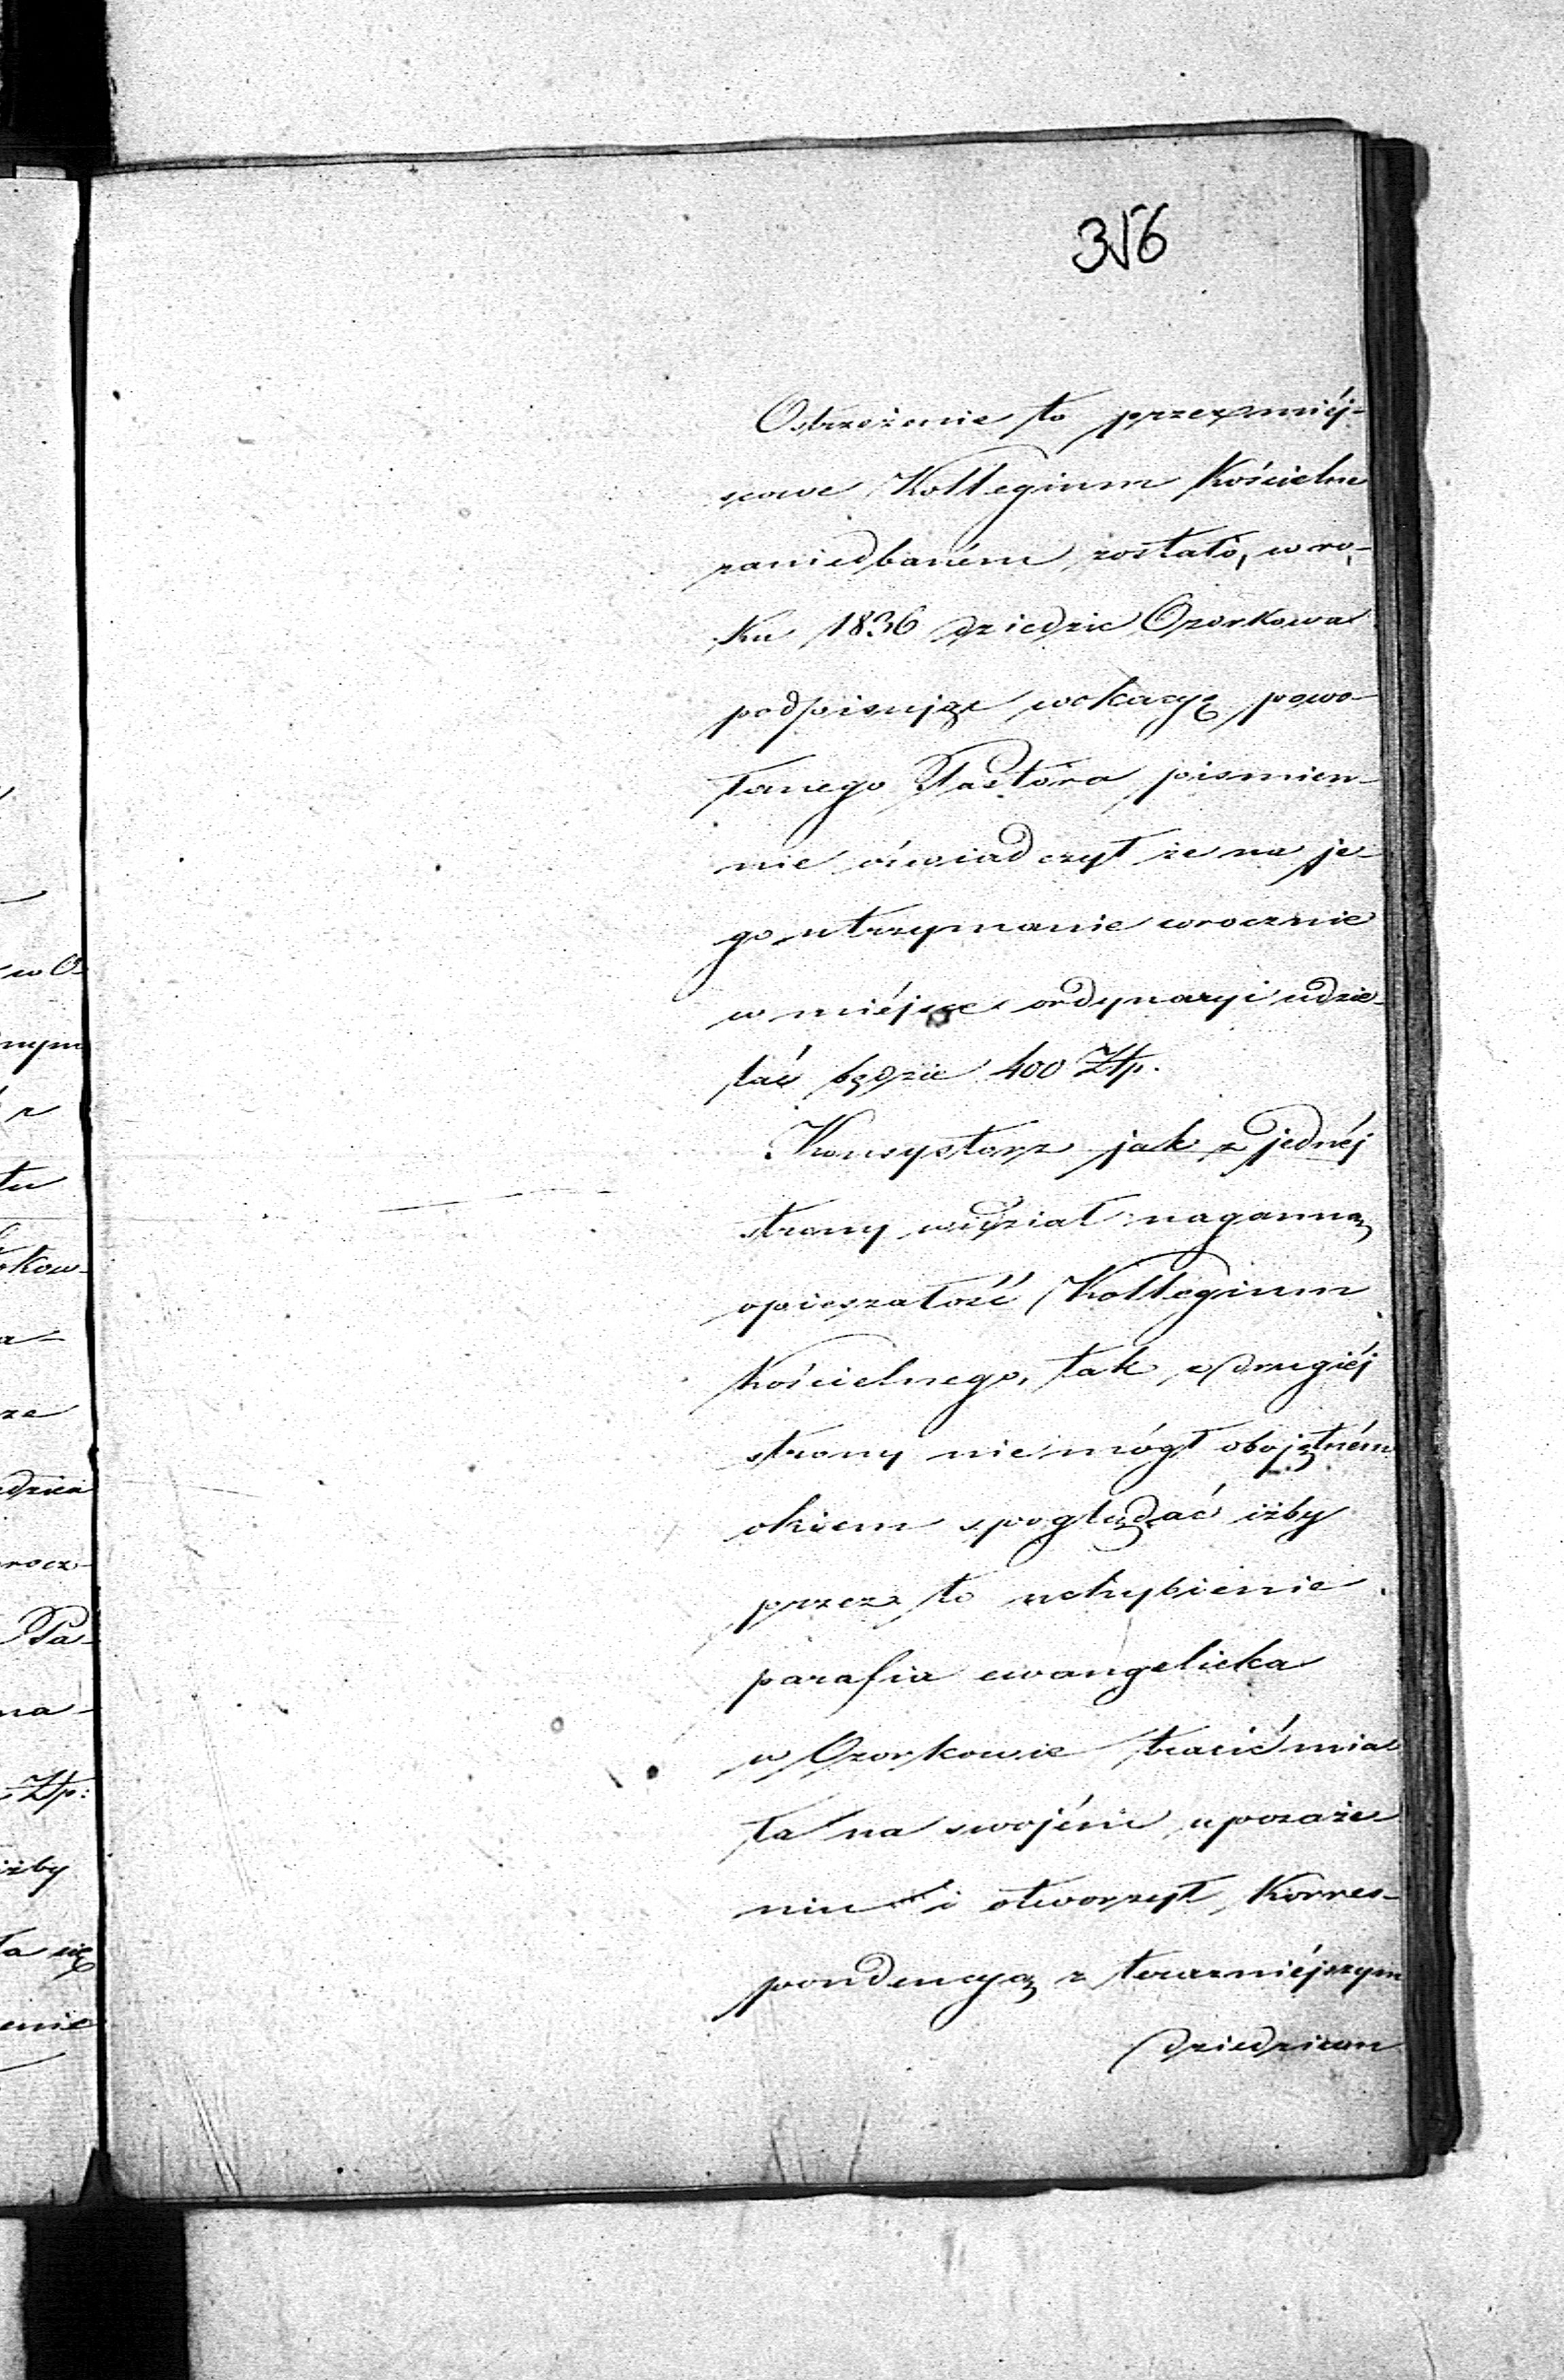 356
Ostrzeżenie to przez miéj-
scowe Kollegium Kościelne
zaniedbaném zostało, w ro-
ku 1836 dziedzic Ozorkowa
podpisując wokacyą powo-
łanego Pastora pismien-
nie óswiadczył że na je-
go utrzymanie corocznie
w miéjsce ordynaryi udzie-
lać będzie 400 Złp.
Konsystorz jak z jednéj
strony widział naganną
opieszałość Kollegium
Kościelnego, tak z drugiéj
strony nie mógł obojętném
okiem spoglądać iżby
przez to uchybienie
parafia ewangelicka
w Ozorkowie tracić mia
ła na swojém uposaże
niu i otworzył Korres-
pondencyą z teraźniéjszym
dziedzicem
w O-
nym
z
tu
kow-
a-
ze
edzica
rocz-
Pa-
na-
Złp:
iżby
ła się
enie